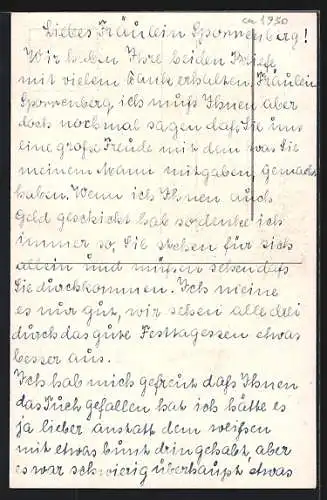 ca 1930
Liebes Fräulein Sponnenberg!
Wir haben Ihre beiden Briefe
mit vielem Dank erhalten. Fräulein
Sponnenberg, ich muß Ihnen aber
doch nochmal sagen daß Sie uns
eine große Freude mit dem was Sie
meinem Mann mitgaben, gemacht
haben. Wenn ich Ihnen auch
Geld geschickt hab so denke ich
immer so, Sie stehen für sich
allein und müßen sehen daß
Sie durchkommen. Ich meine
es nur gut, wir sehen alle drei
durch das gute Festtagessen etwas
besser aus.
Ich hab mich gefreut daß Ihnen
das Tuch gefallen hat ich hätte es
ja lieber anstatt dem weißen
mit etwas bunt drin gehabt, aber
es war schwierig überhaupt etwas